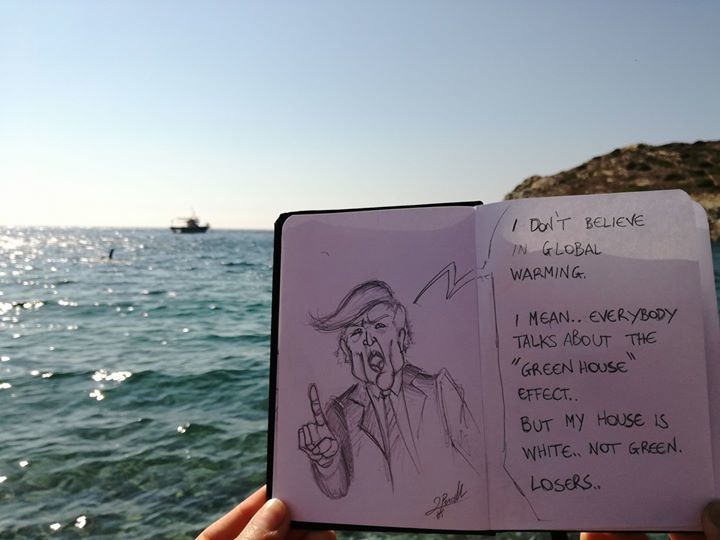 I DON'T BELIEVE
IN GLOBAL
WARMING.
I MEAN.. EVERYBODY
TALKS ABOUT THE
"GREEN HOUSE"
EFFECT..
BUT MY HOUSE IS
WHITE.. NOT GREEN.
LOSERS..